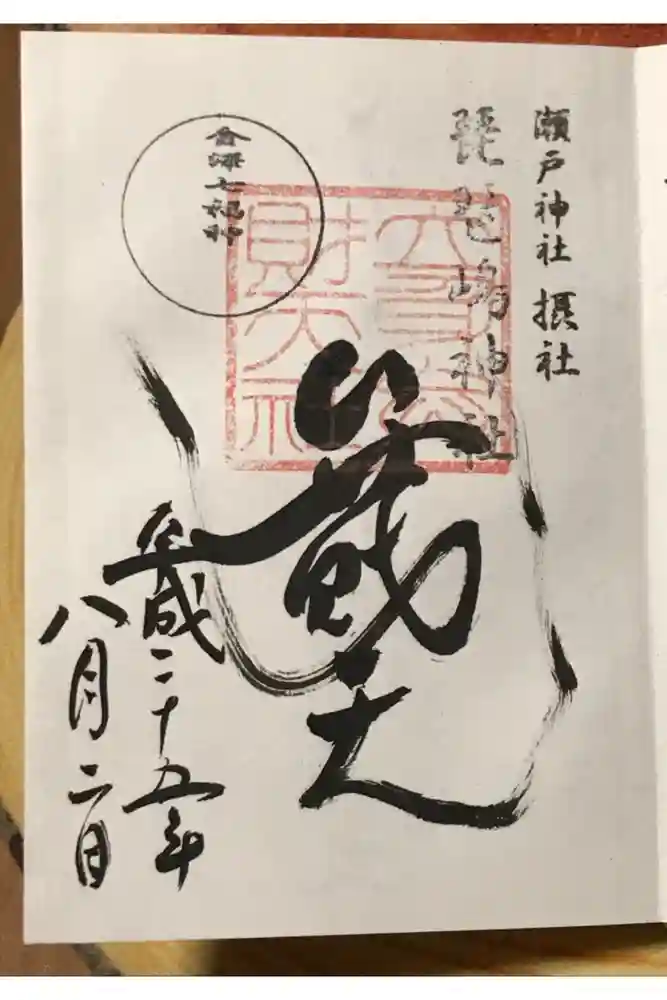 瀬戸神社 摂社
琵琶嶋神社
立身弁
財天社
金澤七福神
平成二十五年
八月二日